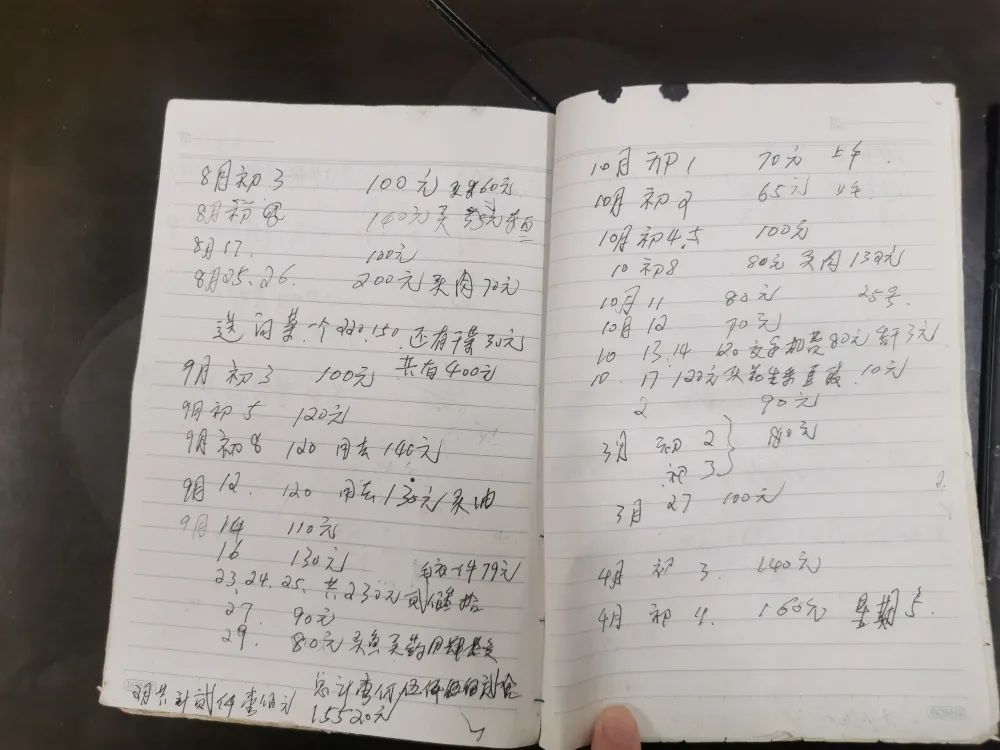 8月初3 100元 买 60元
8月初 140元买
8月17. 100元
8月25、26. 200元买肉70元
送 一个220.150.还有 30元
9月初3 100元 共有400元
9月初5 120元
9月初8 120 用去140元
9月12. 120 用去130元买油
9月14 110元
16 130元
毛衣一件79元
23.24.25.共230元贰佰叁拾
27. 90元
29. 80元买鱼买药用
月共计贰仟壹佰元
总计壹 伍仟伍佰
15520元
10月初1 70元 上午
10月初2 65元
10月初4.5 100元
10初8 80元买肉130元
10月11 80元 25号.
10月12 70元
10 13.14 120交手机费80元 3元
10.17 120元买花生 10元
2 90元
3月初2
初3 180元
3月27 100元
4月初3. 140元
4月初4. 160元 星期5.